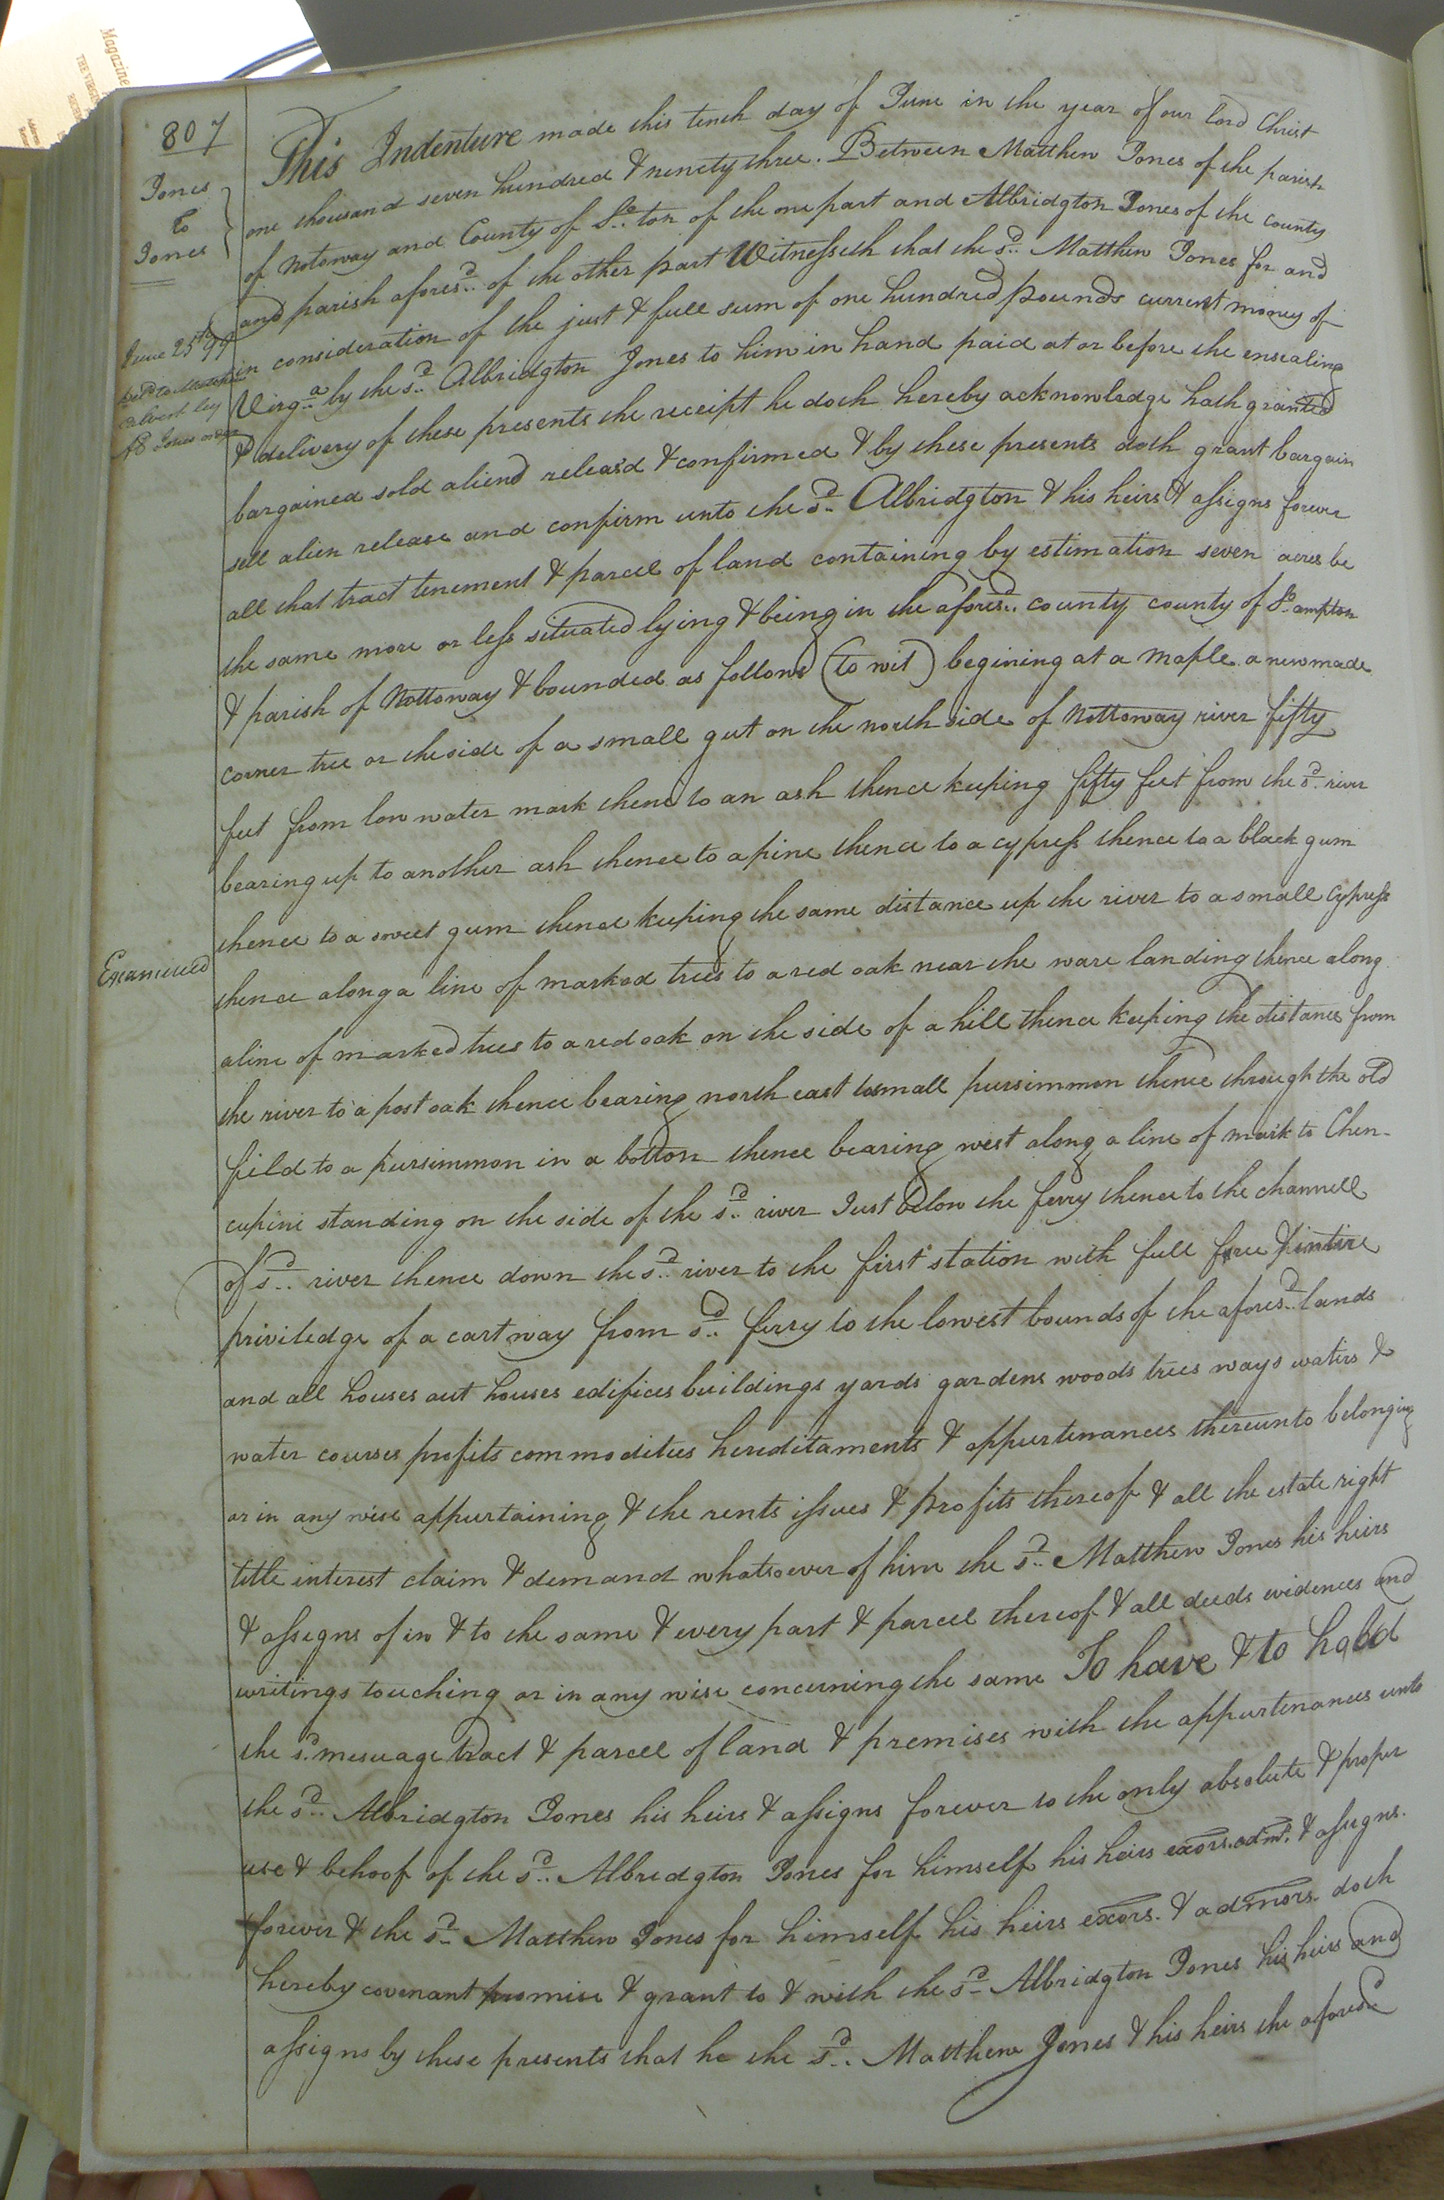 807
Jones
to
Jones
June 25th 99
Examined
This Indenture made this tenth day of June in the year of our lord Christ
one thousand seven hundred & ninety three. Between Matthew Jones of the parish
of Notoway and County of So.ton of the one part and Albridgton Jones of the county
and parish aforesd. of the other part Witnesseth that the sd. Matthew Jones for and
in consideration of the just & full sum of one hundred pounds current money of
Virga. by the sd. Albridgton Jones to him in hand paid at or before the ensealing
& delivery of these presents the receipt he doth hereby acknowledge hath granted
bargained sold aliend releasd & confirmed & by these presents doth grant bargain
sell alien release and confirm unto the sd. Albridgton & his heirs & assigns forever
all that tract tenement & parcel of land containing by estimation seven acres be
the same more or less situated lying & being in the aforesd. county county of So.ampton
& parish of Nottoway & bounded as follows (to wit) begining at a maple a new made
corner tree or the side of a small gut on the north side of Nottoway river fifty
feet from low water mark thence to an ash thence keeping fifty feet from the sd. river
bearing up to another ash thence to a pine thence to a cypress thence to a black gum
thence to a sweet gum thence keeping the same distance up the river to a small cypress
thence along a line of marked trees to a red oak near the ware landing thence along
a line of marked trees to a red oak on the side of a hill thence keeping the distance from
the river to a post oak thence bearing north east to small pursimmon thence through the old
field to a pursimmon in a botton thence bearing west along a line of mark to Chen-
cupine standing on the side of the sd. river Just below the ferry thence to the channell
of sd. river thence down the sd. river to the first station with full free & intire
priviledge of a cart way from sd. ferry to the lowest bounds of the aforesd. lands
and all houses out houses edifices buildings yards gardens woods trees ways waters &
water courses profits commodities hereditaments & appurtenances thereunto belonging
or in any wise appurtaining & the rents issues & profits thereof & all the estate right
title interest claim & demand whatsoever of him the sd. Matthew Jones his heirs
& assigns of in & to the same & every part & parcel thereof & all deeds evidences and
writings touching or in any wise concerning the same To have & to hold
the sd. mesuage tract & parcel of land & premises with the appurtenances unto
the sd. Albridgton Jones his heirs & assigns forever to the only absolute & proper
use & behoof of the sd. Albridgton Jones for himself his heirs exors. adms. & assigns.
forever & the sd. Matthew Jones for himself his heirs exors. & admors. doth
hereby covenant promise & grant to & with the sd. Albridgton Jones his heirs and
assigns by these presents that he the sd. Matthew Jones & his heirs the aforesd